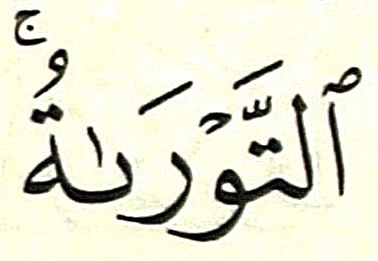 ٱلتَّوْرَىٰةُ ۚ